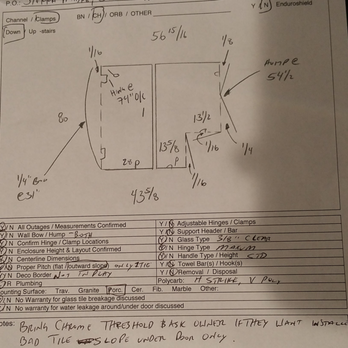 Channel / Clamps
BN / CH / ORB / OTHER
Y / N Enduroshield
Down / Up -stairs
56 15/16
1/16
1/8
Hump @
54 1/2
Hinge @
74" O/L
80
13 1/2
1/16
1/4
13 5/8
1/4" Bow
28 P
P
1/16
43 5/8
Y/N All Outages / Measurements Confirmed
Y/N Wall Bow / Hump - BOTH
Y/N Confirm Hinge / Clamp Locations
Y/N Enclosure Height & Layout Confirmed
Y/N Centerline Dimensions
Y/N Proper Pitch (flat /outward slope)
Y/N Deco Border
Y/N Plumbing
Y/N Adjustable Hinges / Clamps
Y/N Support Header / Bar
Y/N Glass Type 3/8" CLEAR
Y/N Hinge Type
Y/N Handle Type / Height STD
Y/N Towel Bar(s) / Hook(s)
Y/N Removal / Disposal
Polycarb: H STRIKE, V
Mounting Surface: Trav. Granite Porc. Cer. Fib. Marble Other:
Y/N No Warranty for glass tile breakage discussed
Y/N No warranty for water leakage around/under door discussed
Notes: BRING CHROME THRESHOLD & ASK OWNER IF THEY WANT INSTALLED
BAD TILE SLOPE UNDER DOOR ONLY.